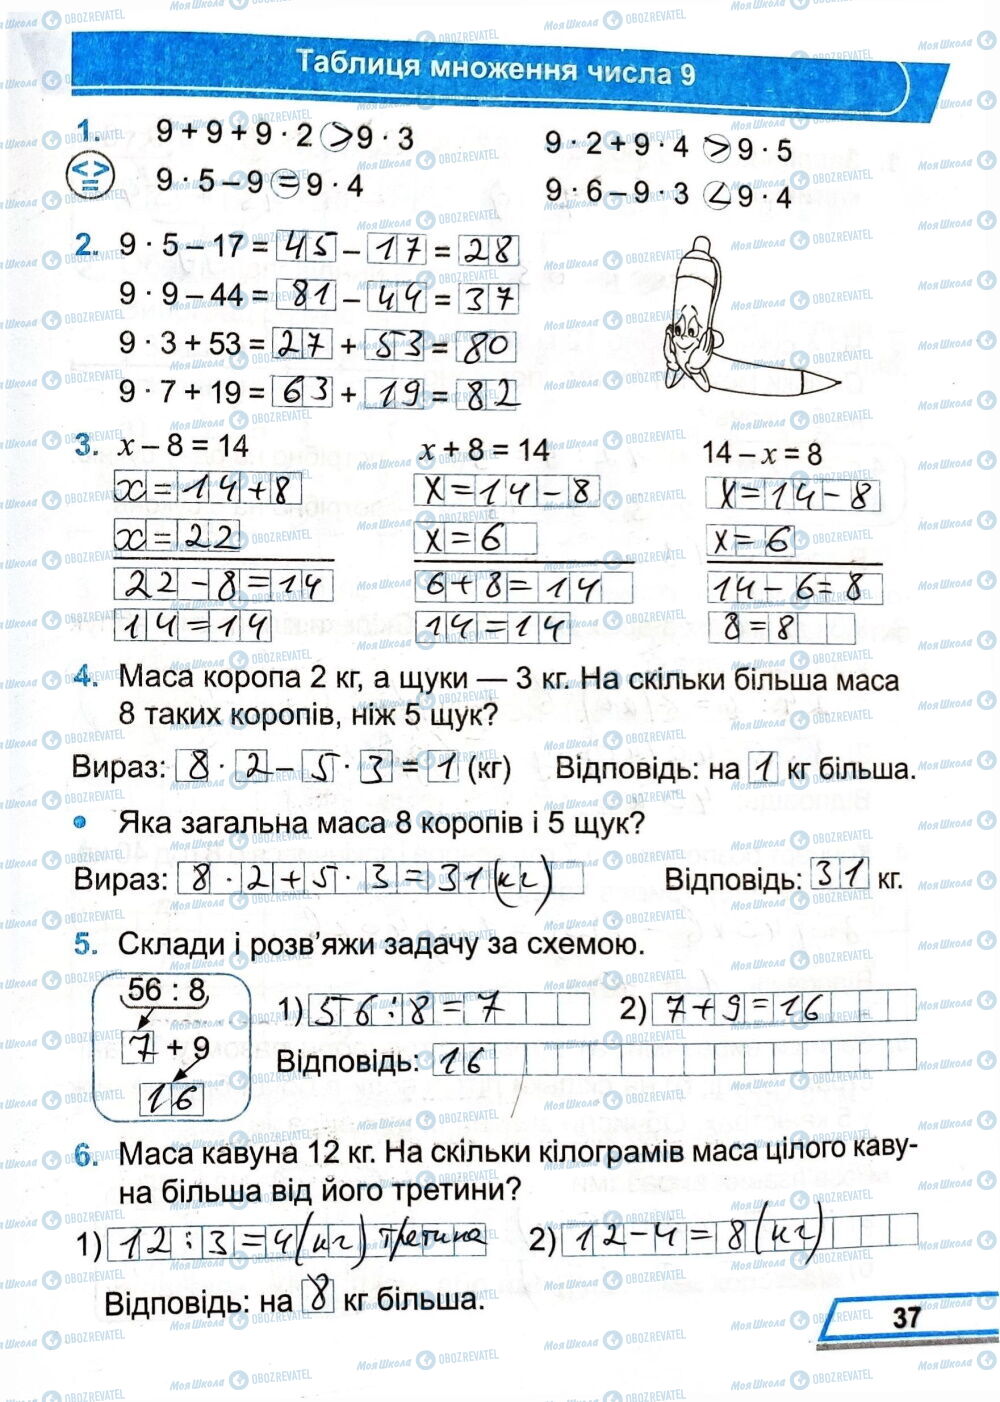 Таблиця множення числа 9
1. 9 + 9 + 9 · 2 > 9 · 3
9 · 2 + 9 · 4 > 9 · 5
< > =
9 · 5 – 9 = 9 · 4
9 · 6 – 9 · 3 < 9 · 4
2. 9 · 5 – 17 = 45 – 17 = 28
9 · 9 – 44 = 81 – 44 = 37
9 · 3 + 53 = 27 + 53 = 80
9 · 7 + 19 = 63 + 19 = 82
3. x – 8 = 14
x + 8 = 14
14 – x = 8
x = 14 + 8
x = 14 – 8
x = 14 – 8
x = 22
x = 6
x = 6
22 – 8 = 14
6 + 8 = 14
14 – 6 = 8
14 = 14
14 = 14
8 = 8
4. Маса коропа 2 кг, а щуки — 3 кг. На скільки більша маса
8 таких коропів, ніж 5 щук?
Вираз: 8 · 2 – 5 · 3 = 1 (кг) Відповідь: на 1 кг більша.
• Яка загальна маса 8 коропів і 5 щук?
Вираз: 8 · 2 + 5 · 3 = 31 (кг) Відповідь: 31 кг.
5. Склади і розв’яжи задачу за схемою.
56 : 8
7 + 9
16
1) 56 : 8 = 7 2) 7 + 9 = 16
Відповідь: 16
6. Маса кавуна 12 кг. На скільки кілограмів маса цілого каву-
на більша від його третини?
1) 12 : 3 = 4 (кг) третина 2) 12 – 4 = 8 (кг)
Відповідь: на 8 кг більша.
37
МояШкола OBOZREVATEL